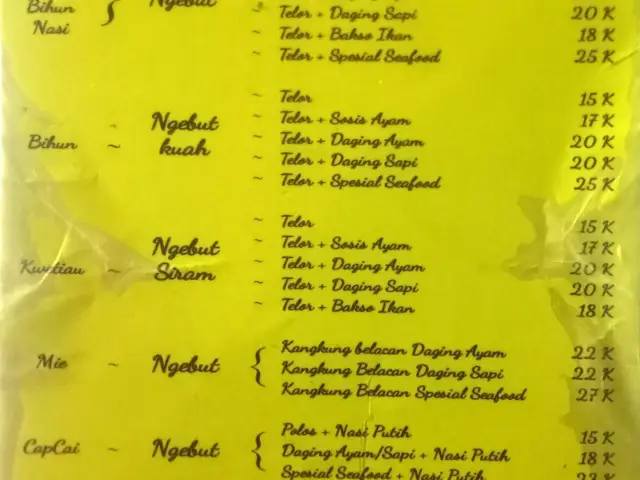 Bihun
Nasi
Ngebut
~ Telor + Daging Sapi 20 K
~ Telor + Bakso Ikan 18 K
~ Telor + Spesial Seafood 25 K
Bihun ~ Ngebut kuah
~ Telor 15 K
~ Telor + Sosis Ayam 17 K
~ Telor + Daging Ayam 20 K
~ Telor + Daging Sapi 20 K
~ Telor + Spesial Seafood 25 K
Kwetiau ~ Ngebut Siram
~ Telor 15 K
~ Telor + Sosis Ayam 17 K
~ Telor + Daging Ayam 20 K
~ Telor + Daging Sapi 20 K
~ Telor + Bakso Ikan 18 K
Mie ~ Ngebut
Kangkung belacan Daging Ayam 22 K
Kangkung Belacan Daging Sapi 22 K
Kangkung Belacan Spesial Seafood 27 K
CapCai ~ Ngebut
Polos + Nasi Putih 15 K
Daging Ayam/Sapi + Nasi Putih 18 K
Spesial Seafood + Nasi Putih 23 K